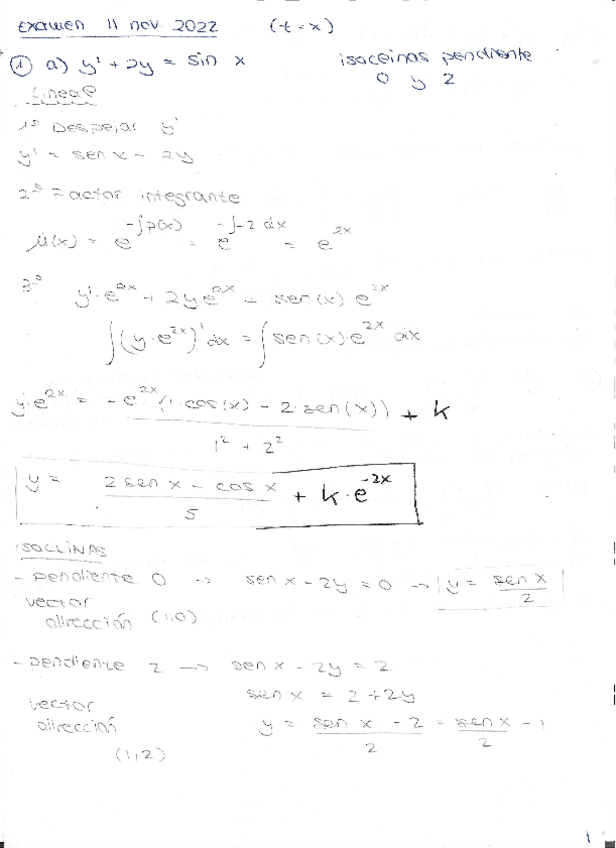 Examen 11 nov 2022 (t=x)
① a) y' + 2y = sin x isoclinas pendiente
0 y 2
Lineal
1º Despejar y'
y' = sen x - 2y
2º Factor integrante
μ(x) = e^{-∫p(x)} = e^{-∫-2 dx} = e^{2x}
3º y'·e^{2x} + 2y e^{2x} = sen(x) e^{2x}
∫(y·e^{2x})' dx = ∫sen(x)·e^{2x} dx
y·e^{2x} = -e^{2x}(1·cos(x) - 2·sen(x)) / (1² + 2²) + k
y = (2 sen x - cos x) / 5 + k·e^{-2x}
ISOCLINAS
- pendiente 0 → sen x - 2y = 0 → y = sen x / 2
vector
dirección (1,0)
- pendiente 2 → sen x - 2y = 2
vector sen x = 2 + 2y
dirección y = (sen x - 2) / 2 = sen x / 2 - 1
(1,2)
1